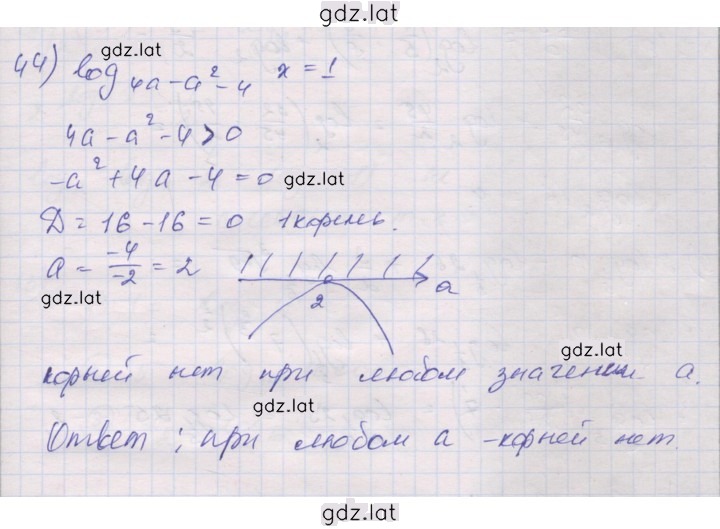 gdz.lat
gdz.lat
44) log 4a-a²-4 x = 1
4a - a² - 4 > 0
-a² + 4a - 4 = 0 gdz.lat
D = 16 - 16 = 0 1 корень.
a = -4/-2 = 2
2 a
gdz.lat
gdz.lat
корней нет при любом значении a.
gdz.lat
Ответ: при любом a - корней нет.
gdz.lat
gdz.lat